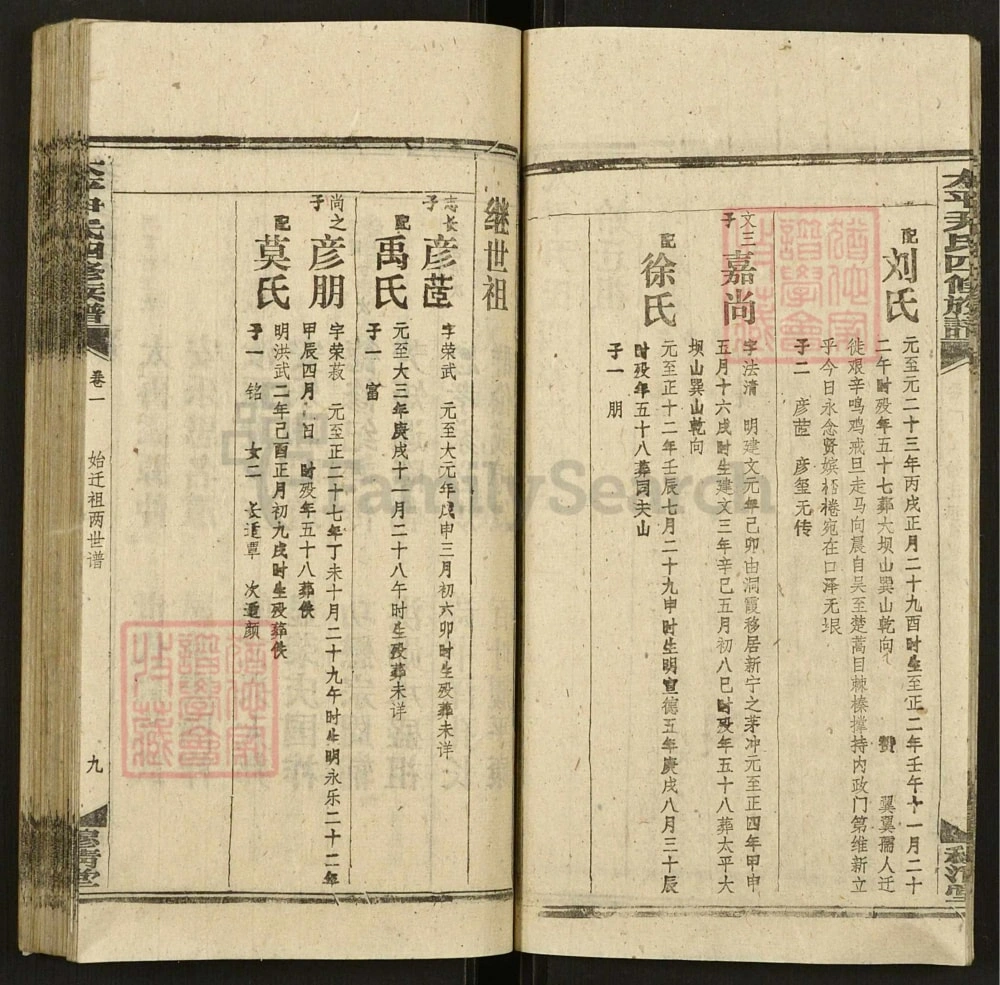 太平尹氏四修族谱
配
刘氏
元至元二十三年丙戌正月二十九酉时生至正二年壬午十一月二十
二午时殁年五十七葬大坝山巽山乾向 赞 翼翼孺人迁
徙艰辛鸣鸡戒旦走马向晨自吴至楚蒿目棘榛撑持内政门第维新立
乎今日永念贤嫔桮棬宛在口泽无垠
子二 彦莒 彦玺无传
文三
子
嘉尚
字法清 明建文元年己卯由洞霞移居新宁之茅冲元至正四年甲申
五月十六戌时生建文三年辛巳五月初八巳时殁年五十八葬太平大
坝山巽山乾向
配
徐氏
元至正十二年壬辰七月二十九申时生明宣德五年庚戌八月三十辰
时殁年五十八葬同夫山
子一 朋
继世祖
志长
子
彦莒
字荣武 元至大元年戊申三月初六卯时生殁葬未详
配
禹氏
元至大三年庚戌十一月二十八午时生殁葬未详
子一 富
尚之
子
彦朋
字荣菽 元至正二十七年丁未十月二十九午时生明永乐二十二年
甲辰四月 日 时殁年五十八葬佚
配
莫氏
明洪武二年己酉正月初九戌时生殁葬佚
子一 铭 女二 长适覃 次适颜
太平尹氏四修族谱
卷一
始迁祖两世谱
九
FamilySearch